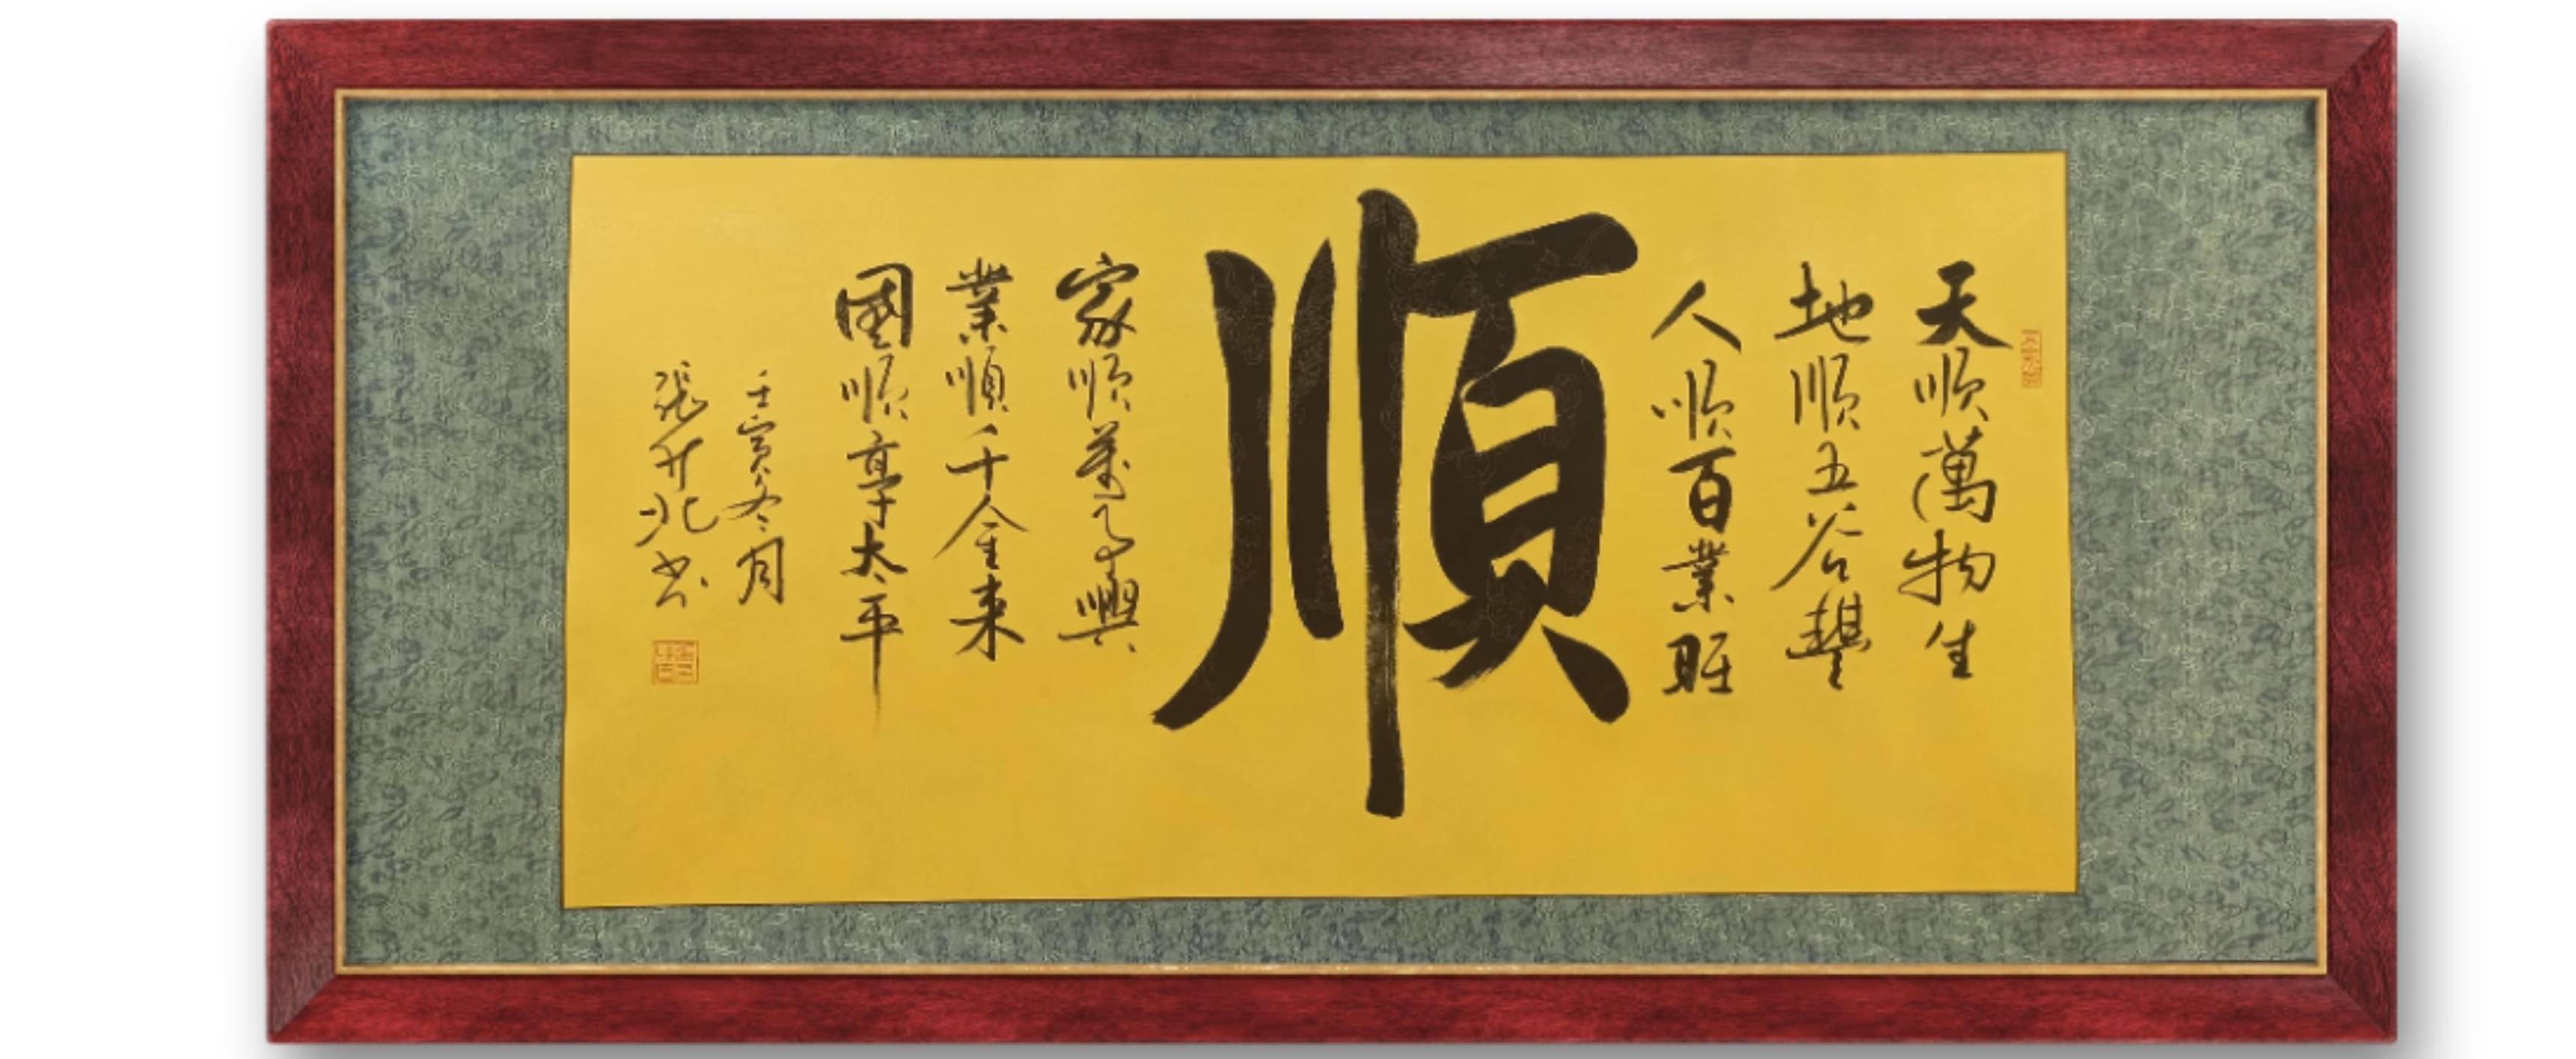 天順萬物生
地順五谷豐
人順百業旺
順
家順萬事興
業順千金来
國順享太平
壬寅冬月
張升北书